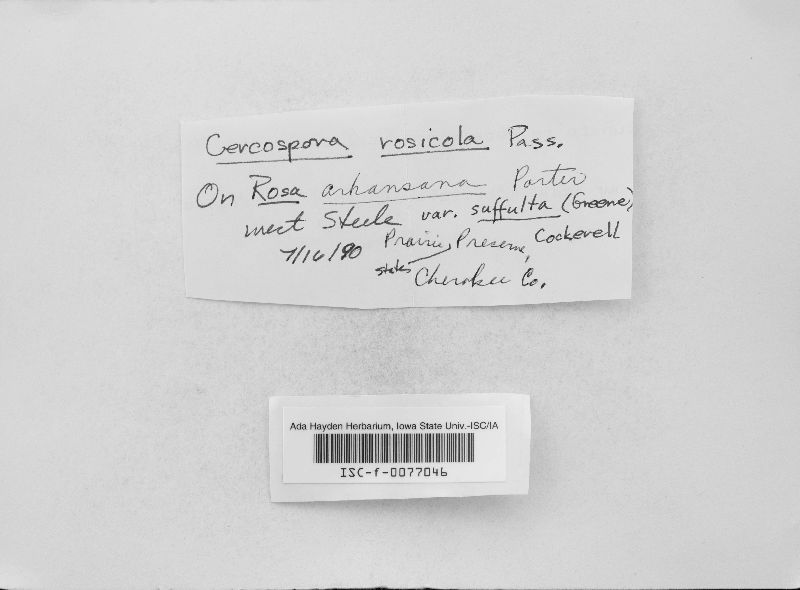 Cercospora rosicola Pass.
On Rosa arkansana Porter
Steele var. suffulta (Greene)
7/16/90 Prairie Preserve, Cockerell
state
Cherokee Co.
Ada Hayden Herbarium, Iowa State Univ.-ISC/IA
ISC-f-0077046